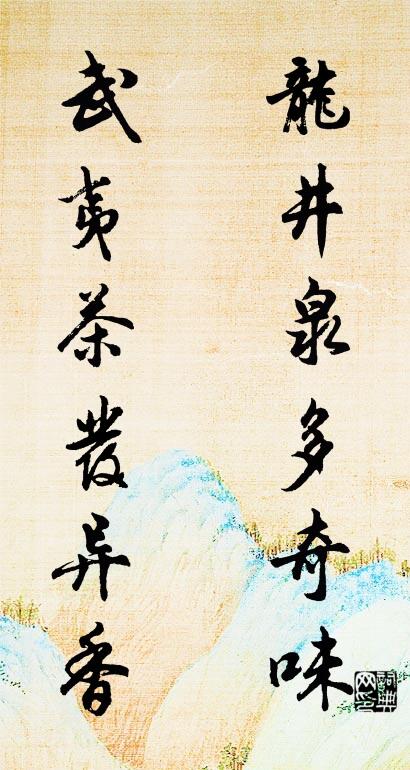 龍井泉多奇味
武夷茶發异香
詞典網印